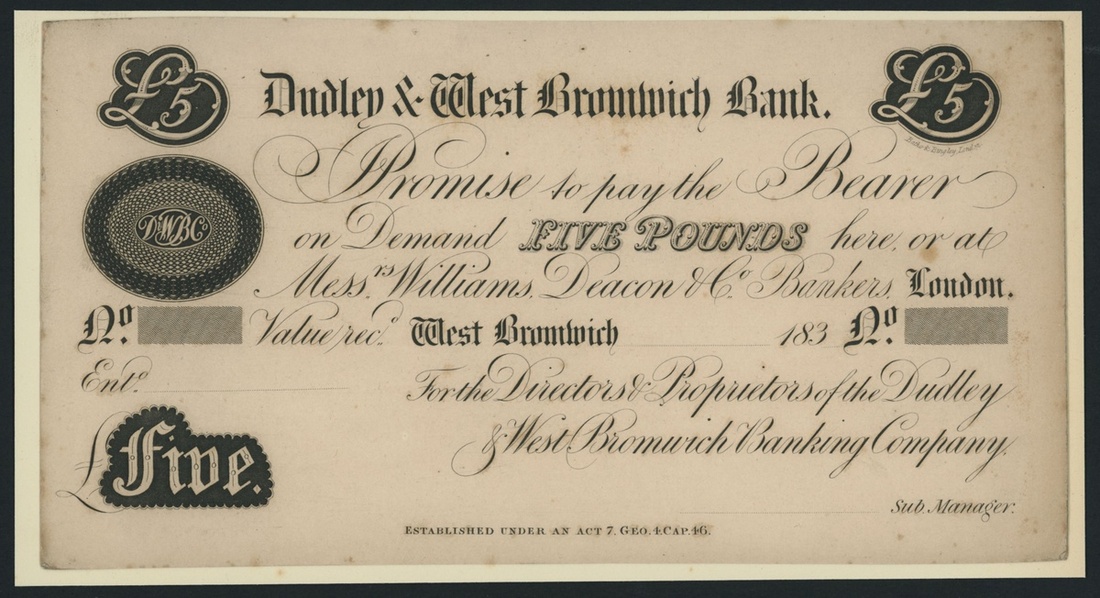 £5
Dudley & West Bromwich Bank.
£5
I Promise to pay the Bearer
on Demand FIVE POUNDS here, or at
D&WBCo
Messrs Williams, Deacon & Co. Bankers, London.
No. Value recd. West Bromwich 183 No.
Entd.
For the Directors & Proprietors of the Dudley
& West Bromwich Banking Company.
£ Five.
Sub Manager.
ESTABLISHED UNDER AN ACT 7. GEO. 4. CAP. 46.